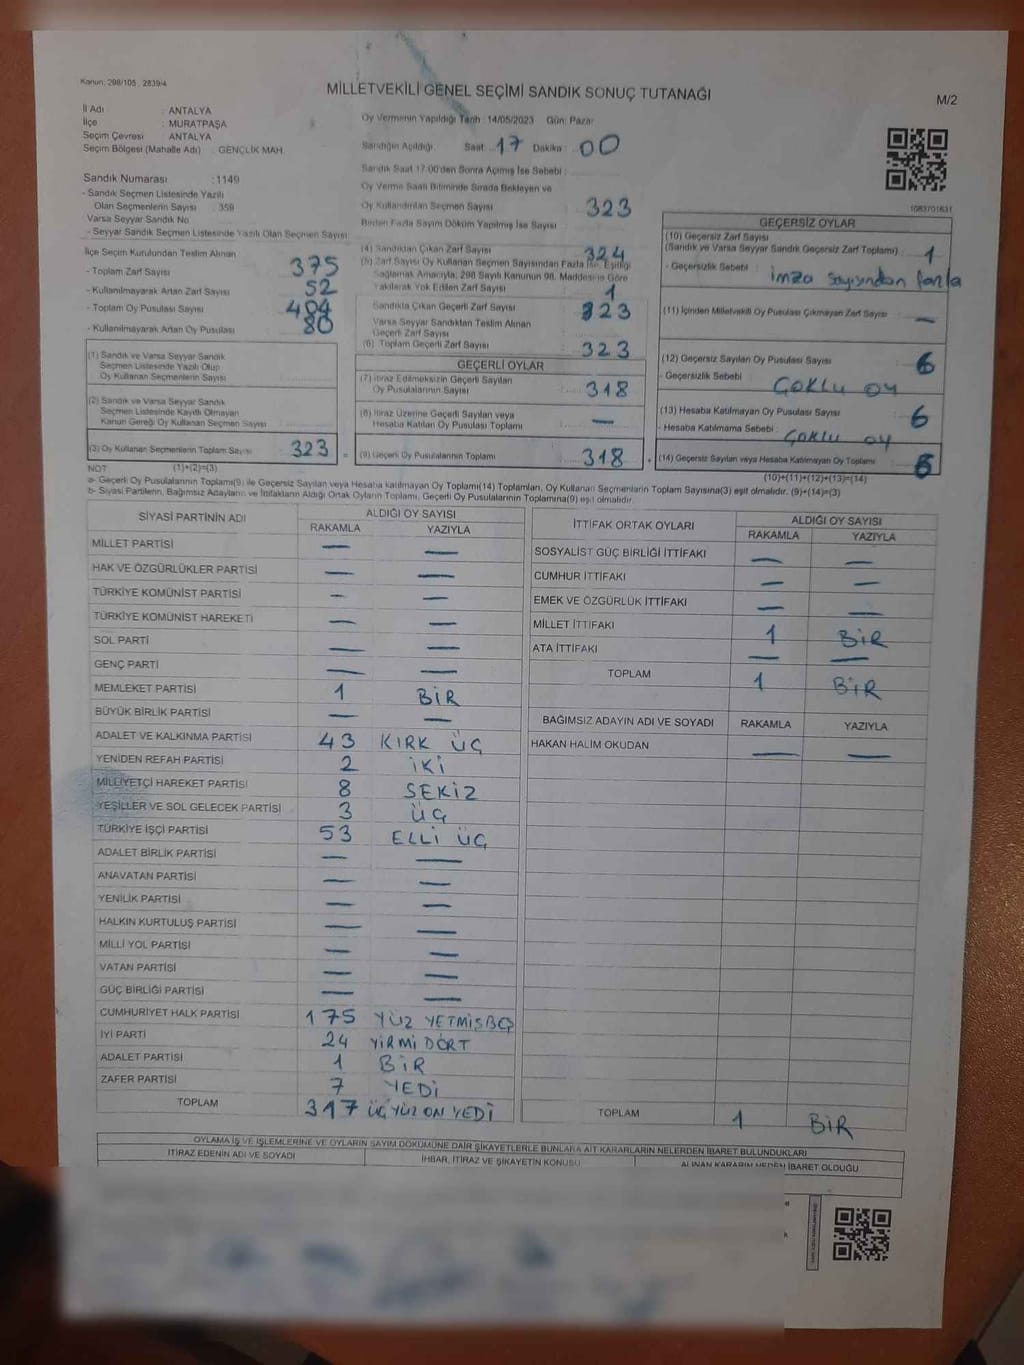 Kanun: 298/105 , 2839/4
MİLLETVEKİLİ GENEL SEÇİMİ SANDIK SONUÇ TUTANAĞI
M/2
İl Adı : ANTALYA
İlçe : MURATPAŞA
Seçim Çevresi : ANTALYA
Seçim Bölgesi (Mahalle Adı) : GENÇLİK MAH.
Sandık Numarası : 1149
- Sandık Seçmen Listesinde Yazılı
Olan Seçmenlerin Sayısı : 359
Varsa Seyyar Sandık No
- Seyyar Sandık Seçmen Listesinde Yazılı Olan Seçmen Sayısı
İlçe Seçim Kurulundan Teslim Alınan
- Toplam Zarf Sayısı 375
- Kullanılmayarak Artan Zarf Sayısı 52
- Toplam Oy Pusulası Sayısı
- Kullanılmayarak Artan Oy Pusulası 80
(1) Sandık ve Varsa Seyyar Sandık
Seçmen Listesinde Yazılı Olup
Oy Kullanan Seçmenlerin Sayısı
(2) Sandık ve Varsa Seyyar Sandık
Seçmen Listesinde Kayıtlı Olmayan
Kanun Gereği Oy Kullanan Seçmen Sayısı :
(3) Oy Kullanan Seçmenlerin Toplam Sayısı 323
Oy Vermenin Yapıldığı Tarih : 14/05/2023 Gün: Pazar
Sandığın Açıldığı Saat : 17 Dakika : 00
Sandık Saat 17:00'den Sonra Açılmış İse Sebebi :
Oy Verme Saati Bitiminde Sırada Bekleyen ve
Oy Kullandırılan Seçmen Sayısı 323
Birden Fazla Sayım Döküm Yapılmış İse Sayısı
(4) Sandıktan Çıkan Zarf Sayısı 324
(5) Zarf Sayısı Oy Kullanan Seçmen Sayısından Fazla İse, Eşitliği
Sağlamak Amacıyla; 298 Sayılı Kanunun 98. Maddesine Göre
Yakılarak Yok Edilen Zarf Sayısı 1
Sandıkta Çıkan Geçerli Zarf Sayısı 323
Varsa Seyyar Sandıktan Teslim Alınan
Geçerli Zarf Sayısı
(6) Toplam Geçerli Zarf Sayısı 323
GEÇERLİ OYLAR
(7) İtiraz Edilmeksizin Geçerli Sayılan
Oy Pusulalarının Sayısı 318
(8) İtiraz Üzerine Geçerli Sayılan veya
Hesaba Katılan Oy Pusulası Toplamı —
(9) Geçerli Oy Pusulalarının Toplamı 318
1083701631
GEÇERSİZ OYLAR
(10) Geçersiz Zarf Sayısı
(Sandık ve Varsa Seyyar Sandık Geçersiz Zarf Toplamı) : 1
- Geçersizlik Sebebi : imza sayısından fazla
(11) İçinden Milletvekili Oy Pusulası Çıkmayan Zarf Sayısı —
(12) Geçersiz Sayılan Oy Pusulası Sayısı 6
- Geçersizlik Sebebi ÇOKLU OY
(13) Hesaba Katılmayan Oy Pusulası Sayısı 6
- Hesaba Katılmama Sebebi : ÇOKLU OY
(14) Geçersiz Sayılan veya Hesaba Katılmayan Oy Toplamı
NOT: (1)+(2)=(3) (10)+(11)+(12)+(13)=(14)
a- Geçerli Oy Pusulaları Toplamı(9) ile Geçersiz Sayılan veya Hesaba Katılmayan Oy Toplamı(14) Toplamları, Oy Kullanan Seçmenlerin Toplam Sayısına(3) eşit olmalıdır. (9)+(14)=(3)
b- Siyasi Partilerin, Bağımsız Adayların ve İttifakların Aldığı Ortak Oyların Toplamı, Geçerli Oy Pusulalarının Toplamına(9) eşit olmalıdır.
SİYASİ PARTİNİN ADI ALDIĞI OY SAYISI
RAKAMLA YAZIYLA
MİLLET PARTİSİ — —
HAK VE ÖZGÜRLÜKLER PARTİSİ — —
TÜRKİYE KOMÜNİST PARTİSİ — —
TÜRKİYE KOMÜNİST HAREKETİ — —
SOL PARTİ — —
GENÇ PARTİ — —
MEMLEKET PARTİSİ 1 BİR
BÜYÜK BİRLİK PARTİSİ — —
ADALET VE KALKINMA PARTİSİ 43 KIRK ÜÇ
YENİDEN REFAH PARTİSİ 2 İKİ
MİLLİYETÇİ HAREKET PARTİSİ 8 SEKİZ
YEŞİLLER VE SOL GELECEK PARTİSİ 3 ÜÇ
TÜRKİYE İŞÇİ PARTİSİ 53 ELLİ ÜÇ
ADALET BİRLİK PARTİSİ — —
ANAVATAN PARTİSİ — —
YENİLİK PARTİSİ — —
HALKIN KURTULUŞ PARTİSİ — —
MİLLİ YOL PARTİSİ — —
VATAN PARTİSİ — —
GÜÇ BİRLİĞİ PARTİSİ — —
CUMHURİYET HALK PARTİSİ 175 YÜZ YETMİŞBEŞ
İYİ PARTİ 24 YİRMİ DÖRT
ADALET PARTİSİ 1 BİR
ZAFER PARTİSİ 7 YEDİ
TOPLAM 317 ÜÇ YÜZ ON YEDİ
İTTİFAK ORTAK OYLARI ALDIĞI OY SAYISI
RAKAMLA YAZIYLA
SOSYALİST GÜÇ BİRLİĞİ İTTİFAKI — —
CUMHUR İTTİFAKI — —
EMEK VE ÖZGÜRLÜK İTTİFAKI — —
MİLLET İTTİFAKI 1 BİR
ATA İTTİFAKI — —
TOPLAM 1 BİR
BAĞIMSIZ ADAYIN ADI VE SOYADI RAKAMLA YAZIYLA
HAKAN HALİM OKUDAN — —
TOPLAM 1 BİR
OYLAMA İŞ VE İŞLEMLERİNE VE OYLARIN SAYIM DÖKÜMÜNE DAİR ŞİKAYETLERLE BUNLARA AİT KARARLARIN NELERDEN İBARET BULUNDUKLARI
İTİRAZ EDENİN ADI VE SOYADI İHBAR, İTİRAZ VE ŞİKAYETİN KONUSU ALINAN KARARIN NEDEN İBARET OLDUĞU